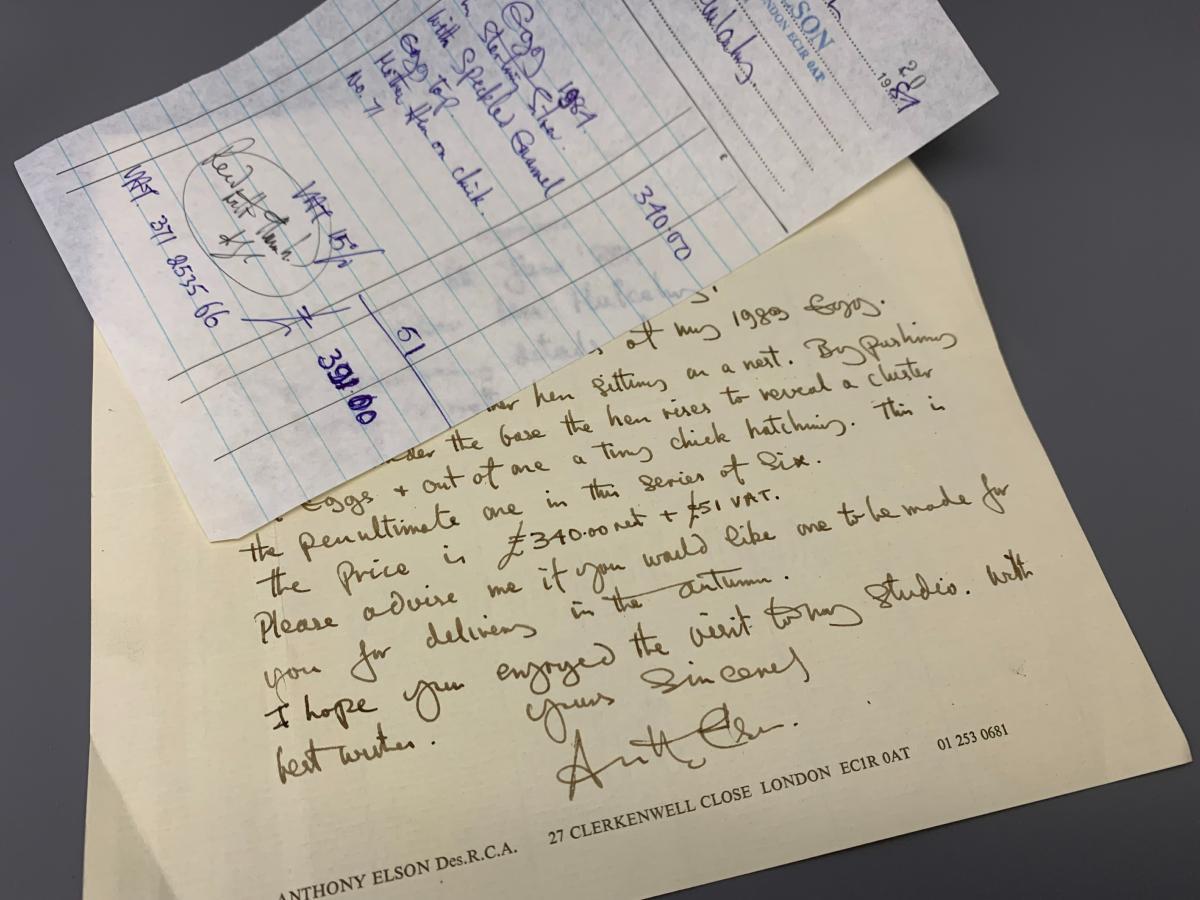 SON
NDON EC1R 0AT
20
1984
Egg 1984.
Sterling Silver.
with Speckled Enamel
egg top.
Mother Hen on chick.
No. 71
340.00
VAT 15%
51
391.00
Recd with thanks
VAT 371 2535 66
of my 1989 Eggs.
hen sitting on a nest. By pushing
the base the hen rises to reveal a cluster
Eggs + out of one a tiny chick hatching. This is
the penultimate one in this series of Six.
the price is £340.00 net + £51 VAT.
Please advise me if you would like one to be made for
you for delivery in the autumn.
I hope you enjoyed the visit to my Studio. With
best wishes. yours Sincerely
ANTHONY ELSON Des.R.C.A. 27 CLERKENWELL CLOSE LONDON EC1R 0AT 01 253 0681